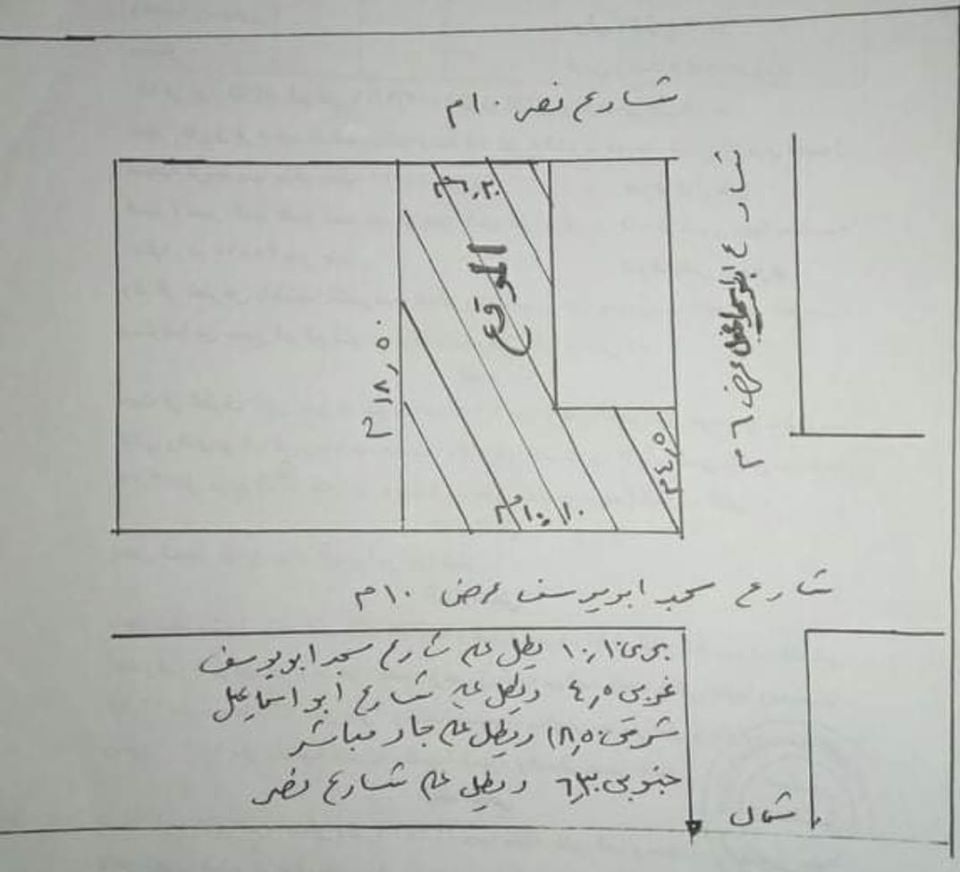 شارع نصر ١٠م
٦,٣٠م
الموقع
١٨,٥٠م
٤,٥م
١٠,١٠م
شارع ابو اسماعيل عرض ٦م
شارع مسجد ابو يوسف عرض ١٠م
بحرى ١٠,١٠ يطل على شارع مسجد ابو يوسف
غربى ٤,٥ ويطل على شارع أبو اسماعيل
شرقى ١٨,٥٠ ويطل على جار مباشر
جنوبى ٦,٣٠ ويطل على شارع نصر
شمال